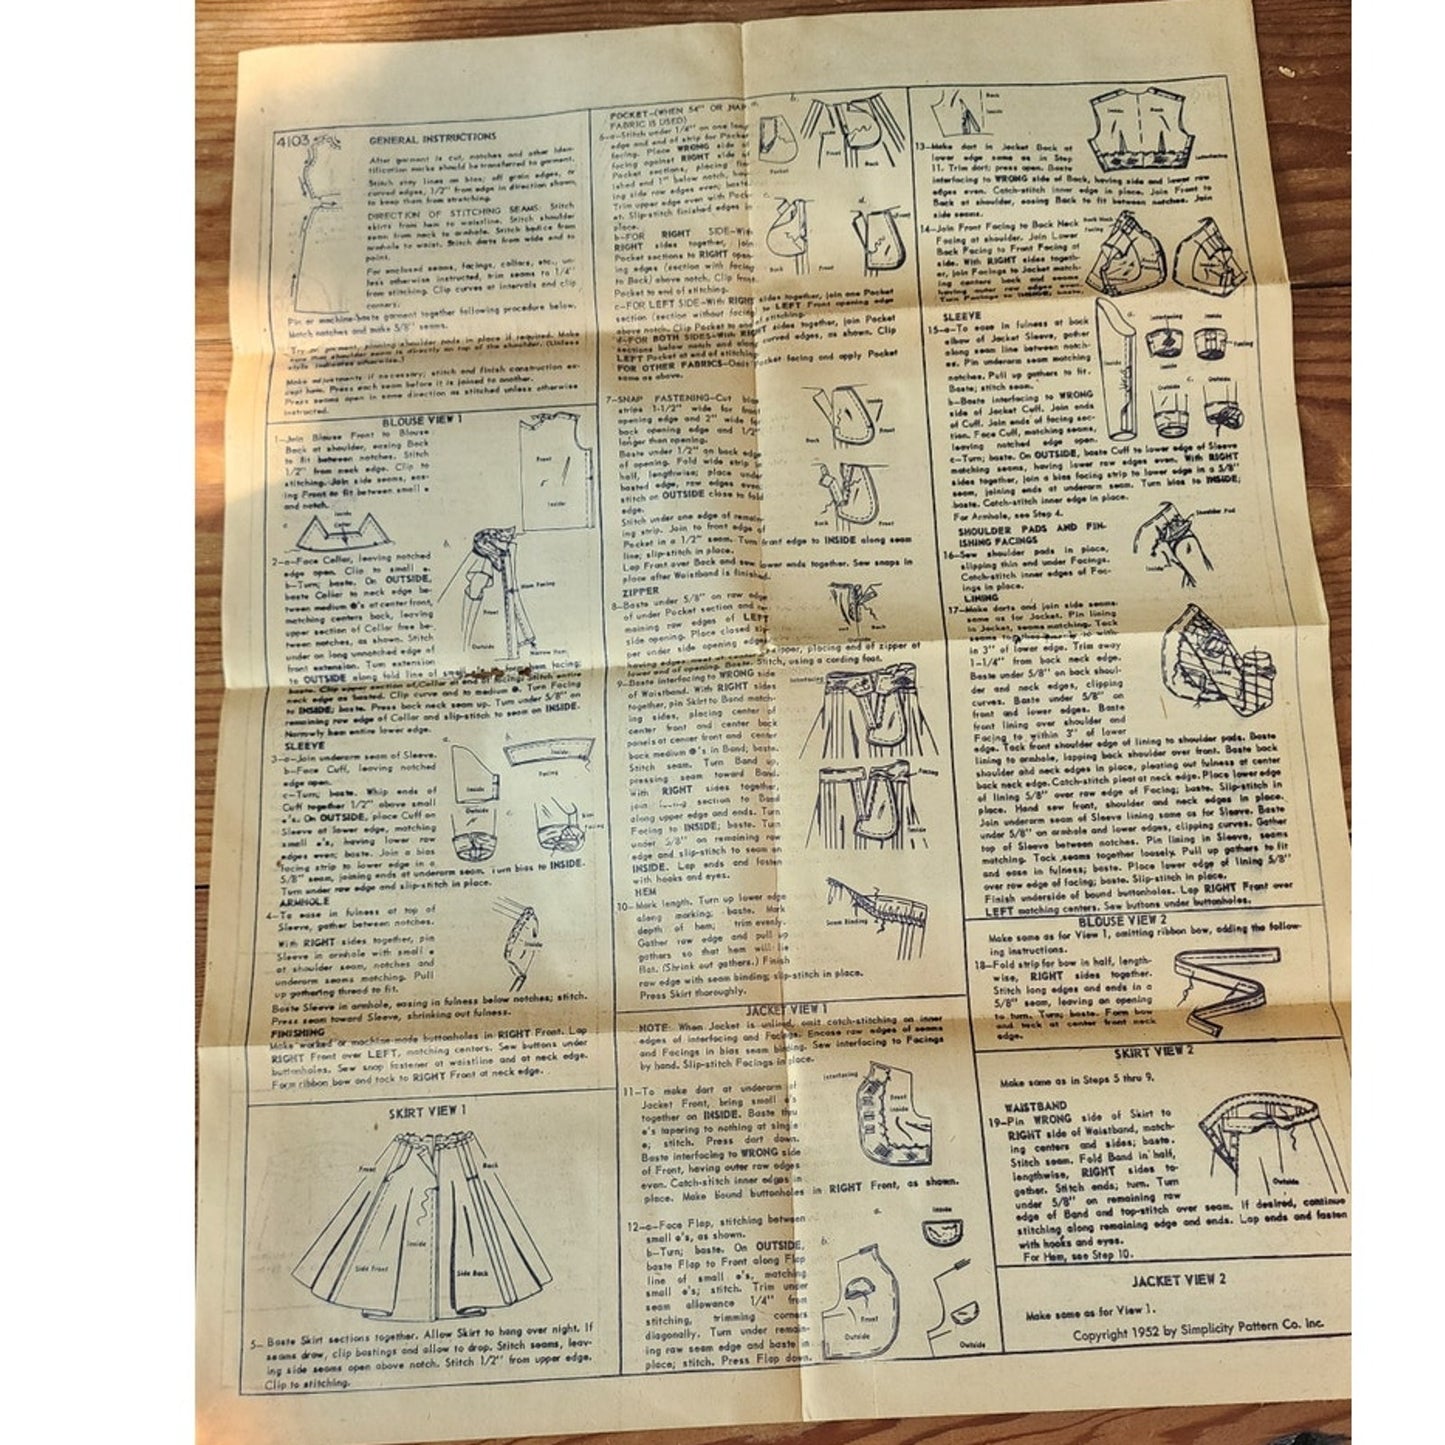 4103
GENERAL INSTRUCTIONS
After garment is cut, notches and other iden-
tification marks should be transferred to garment.
Stitch stay lines on bias; off grain edges, or
curved edges, 1/2" from edge in direction shown,
to keep them from stretching.
DIRECTION OF STITCHING SEAMS: Stitch
skirts from hem to waistline. Stitch shoulder
seam from neck to armhole. Stitch bodice from
armhole to waist. Stitch darts from wide end to
point.
For enclosed seams, facings, collars, etc., un-
less otherwise instructed, trim seams to 1/4"
from stitching. Clip curves at intervals and clip
corners.
Pin or machine-baste garment together following procedure below.
Match notches and make 5/8" seams.
Try on garment, pinning shoulder pads in place if required. Make
sure that shoulder seam is directly on top of the shoulder. (Unless
style indicates otherwise.)
Make adjustments if necessary; stitch and finish construction ex-
cept hem. Press each seam before it is joined to another.
Press seams open in same direction as stitched unless otherwise
instructed.
BLOUSE VIEW 1
1—Join Blouse Front to Blouse
Back at shoulder, easing Back
to fit between notches. Stitch
1/2" from neck edge. Clip to
stitching. Join side seams, eas-
ing Front to fit between small •
and notch.
Front
Inside
a
Inside
Collar
2—a—Face Collar, leaving notched
edge open. Clip to small •.
b—Turn; baste. On OUTSIDE,
baste Collar to neck edge be-
tween medium ●'s at center front,
matching centers back, leaving
upper section of Collar free be-
tween notches, as shown. Stitch
under on long unnotched edge of
front extension. Turn extension
to OUTSIDE along fold line of small
hem facing;
baste. Clip upper section of Collar at end of facing. Stitch entire
neck edge as basted. Clip curve and to medium ●. Turn Facing
to INSIDE; baste. Press back neck seam up. Turn under 5/8" on
remaining raw edge of Collar and slip-stitch to seam on INSIDE.
Narrowly hem entire lower edge.
b.
Hem Facing
Front
Outside
Narrow Hem
SLEEVE
3—a—Join underarm seam of Sleeve.
b—Face Cuff, leaving notched
edge open.
c—Turn; baste. Whip ends of
Cuff together 1/2" above small
•'s. On OUTSIDE, place Cuff on
Sleeve at lower edge, matching
small •'s, having lower raw
edges even; baste. Join a bias
facing strip to lower edge in a
5/8" seam, joining ends at underarm seam. Turn bias to INSIDE.
Turn under raw edge and slip-stitch in place.
a.
Inside
b.
Inside
Facing
Outside
c.
Inside
Facing
ARMHOLE
4—To ease in fulness at top of
Sleeve, gather between notches.
With RIGHT sides together, pin
Sleeve in armhole with small •
at shoulder seam, notches and
underarm seams matching. Pull
up gathering thread to fit.
Baste Sleeve in armhole, easing in fulness below notches; stitch.
Press seam toward Sleeve, shrinking out fulness.
Inside
FINISHING
Make worked or machine-made buttonholes in RIGHT Front. Lap
RIGHT Front over LEFT, matching centers. Sew buttons under
buttonholes. Sew snap fastener at waistline and at neck edge.
Form ribbon bow and tack to RIGHT Front at neck edge.
SKIRT VIEW 1
Front
Back
Inside
Side Front
Side Back
5—Baste Skirt sections together. Allow Skirt to hang over night. If
seams draw, clip bastings and allow to drop. Stitch seams, leav-
ing side seams open above notch. Stitch 1/2" from upper edge.
Clip to stitching.
POCKET—(WHEN 54" OR NAP
FABRIC IS USED)
6—a—Stitch under 1/4" on one long
edge and end of strip for Pocket
facing. Place WRONG side of
facing against RIGHT side of
Pocket sections, placing fin-
ished end 1" below notch, hav-
ing side raw edges even; baste.
Trim upper edge even with Pock-
et. Slip-stitch finished edges in
place.
b—FOR RIGHT SIDE—With
RIGHT sides together, join
Pocket sections to RIGHT open-
ing edges (section with facing
to Back) above notch. Clip front
Pocket to end of stitching.
c—FOR LEFT SIDE—With RIGHT sides together, join one Pocket
section (section without facing) to LEFT Front opening edge
above notch. Clip Pocket to end of stitching.
d—FOR BOTH SIDES—With RIGHT sides together, join Pocket
sections below notch and along curved edges, as shown. Clip
LEFT Pocket at end of stitching.
FOR OTHER FABRICS—Omit Pocket facing and apply Pocket
same as above.
a.
Pocket
b.
Inside
Front
Back
c.
Inside
Back
Front
d.
Front
7—SNAP FASTENING—Cut bias
strips 1-1/2" wide for front
opening edge and 2" wide for
back opening edge and 1/2"
longer than opening.
Baste under 1/2" on back edge
of opening. Fold wide strip in
half, lengthwise; place under
basted edge, raw edges even;
stitch on OUTSIDE close to fold
edge.
Stitch under one edge of remain-
ing strip. Join to front edge of
Pocket in a 1/2" seam. Turn front edge to INSIDE along seam
line; slip-stitch in place.
Lap Front over Back and sew lower ends together. Sew snaps in
place after Waistband is finished.
Inside
Back
Front
Inside
Back
Front
ZIPPER
8—Baste under 5/8" on raw edge
of under Pocket section and re-
maining raw edges of LEFT
side opening. Place closed zip-
per under side opening edges,
having edges meet at center of zipper, placing end of zipper at
lower end of opening. Baste. Stitch, using a cording foot.
Back
Outside
9—Baste interfacing to WRONG side
of Waistband. With RIGHT sides
together, pin Skirt to Band match-
ing sides, placing center of
center front and center back
panels at center front and center
back medium ●'s in Band; baste.
Stitch seam. Turn Band up,
pressing seam toward Band.
With RIGHT sides together,
join facing section to Band
along upper edge and ends. Turn
Facing to INSIDE; baste. Turn
under 5/8" on remaining raw
edge and slip-stitch to seam on
INSIDE. Lap ends and fasten
with hooks and eyes.
Interfacing
Facing
Inside
HEM
10—Mark length. Turn up lower edge
along marking; baste. Mark
depth of hem; trim evenly.
Gather raw edge and pull up
gathers so that hem will lie
flat. (Shrink out gathers.) Finish
raw edge with seam binding; slip-stitch in place.
Press Skirt thoroughly.
Seam Binding
JACKET VIEW 1
NOTE: When Jacket is unlined, omit catch-stitching on inner
edges of interfacing and Facings. Encase raw edges of seams
and Facings in bias seam binding. Sew interfacing to Facings
by hand. Slip-stitch Facings in place.
11—To make dart at underarm of
Jacket Front, bring small •'s
together on INSIDE. Baste thru
•'s tapering to nothing at single
•; stitch. Press dart down.
Baste interfacing to WRONG side
of Front, having outer raw edges
even. Catch-stitch inner edges in
place. Make bound buttonholes in RIGHT Front, as shown.
Interfacing
Front
Inside
12—a—Face Flap, stitching between
small •'s, as shown.
b—Turn; baste. On OUTSIDE,
baste Flap to Front along Flap
line of small •'s, matching
small •'s; stitch. Trim under
seam allowance 1/4" from
stitching, trimming corners
diagonally. Turn under remain-
ing raw seam edge and baste in
place; stitch. Press Flap down.
a.
Inside
b.
Front
Outside
Outside
Back
Inside
Inside
Back
Interfacing
13—Make dart in Jacket Back at
lower edge same as in Step
11. Trim dart; press open. Baste
interfacing to WRONG side of Back, having side and lower raw
edges even. Catch-stitch inner edge in place. Join Front to
Back at shoulder, easing Back to fit between notches. Join
side seams.
14—Join Front Facing to Back Neck
Facing at shoulder. Join Lower
Back Facing to Front Facing at
side. With RIGHT sides togeth-
er, join Facings to Jacket match-
ing centers back and seams
having outer raw edges even.
Turn Facings to INSIDE; baste.
Back Neck
Facing
SLEEVE
15—a—To ease in fulness at back
elbow of Jacket Sleeve, gather
along seam line between notch-
es. Pin underarm seam matching
notches. Pull up gathers to fit.
Baste; stitch seam.
b—Baste interfacing to WRONG
side of Jacket Cuff. Join ends
of Cuff. Join ends of facing sec-
tion. Face Cuff, matching seams,
leaving notched edge open.
c—Turn; baste. On OUTSIDE, baste Cuff to lower edge of Sleeve
matching seams, having lower raw edges even. With RIGHT
sides together, join a bias facing strip to lower edge in a 5/8"
seam, joining ends at underarm seam. Turn bias to INSIDE;
baste. Catch-stitch inner edge in place.
For Armhole, see Step 4.
a.
Inside
Interfacing
Inside
Facing
Outside
c.
Outside
SHOULDER PADS AND FIN-
ISHING FACINGS
16—Sew shoulder pads in place,
slipping thin end under Facings.
Catch-stitch inner edges of Fac-
ings in place.
Shoulder Pad
Inside
LINING
17—Make darts and join side seams
same as for Jacket. Pin lining
in Jacket, seams matching. Tack
seams together loosely to with-
in 3" of lower edge. Trim away
1-1/4" from back neck edge.
Baste under 5/8" on back shoul-
der and neck edges, clipping
curves. Baste under 5/8" on
front and lower edges. Baste
front lining over shoulder and
Facing to within 3" of lower
edge. Tack front shoulder edge of lining to shoulder pads. Baste
lining to armhole, lapping back shoulder over front. Baste back
shoulder and neck edges in place, pleating out fulness at center
back neck edge. Catch-stitch pleat at neck edge. Place lower edge
of lining 5/8" over raw edge of Facing; baste. Slip-stitch in
place. Hand sew front, shoulder and neck edges in place.
Join underarm seam of Sleeve lining same as for Sleeve. Baste
under 5/8" on armhole and lower edges, clipping curves. Gather
top of Sleeve between notches. Pin lining in Sleeve, seams
matching. Tack seams together loosely. Pull up gathers to fit
and ease in fulness; baste. Place lower edge of lining 5/8"
over raw edge of facing; baste. Slip-stitch in place.
Finish underside of bound buttonholes. Lap RIGHT Front over
LEFT matching centers. Sew buttons under buttonholes.
Lining
BLOUSE VIEW 2
Make same as for View 1, omitting ribbon bow, adding the follow-
ing instructions.
18—Fold strip for bow in half, length-
wise, RIGHT sides together.
Stitch long edges and ends in a
5/8" seam, leaving an opening
to turn. Turn; baste. Form bow
and tack at center front neck
edge.
SKIRT VIEW 2
Make same as in Steps 5 thru 9.
WAISTBAND
19—Pin WRONG side of Skirt to
RIGHT side of Waistband, match-
ing centers and sides; baste.
Stitch seam. Fold Band in half,
lengthwise, RIGHT sides to-
gether. Stitch ends; turn. Turn
under 5/8" on remaining raw
edge of Band and top-stitch over seam. If desired, continue
stitching along remaining edge and ends. Lap ends and fasten
with hooks and eyes.
For Hem, see Step 10.
Outside
JACKET VIEW 2
Make same as for View 1.
Copyright 1952 by Simplicity Pattern Co. Inc.